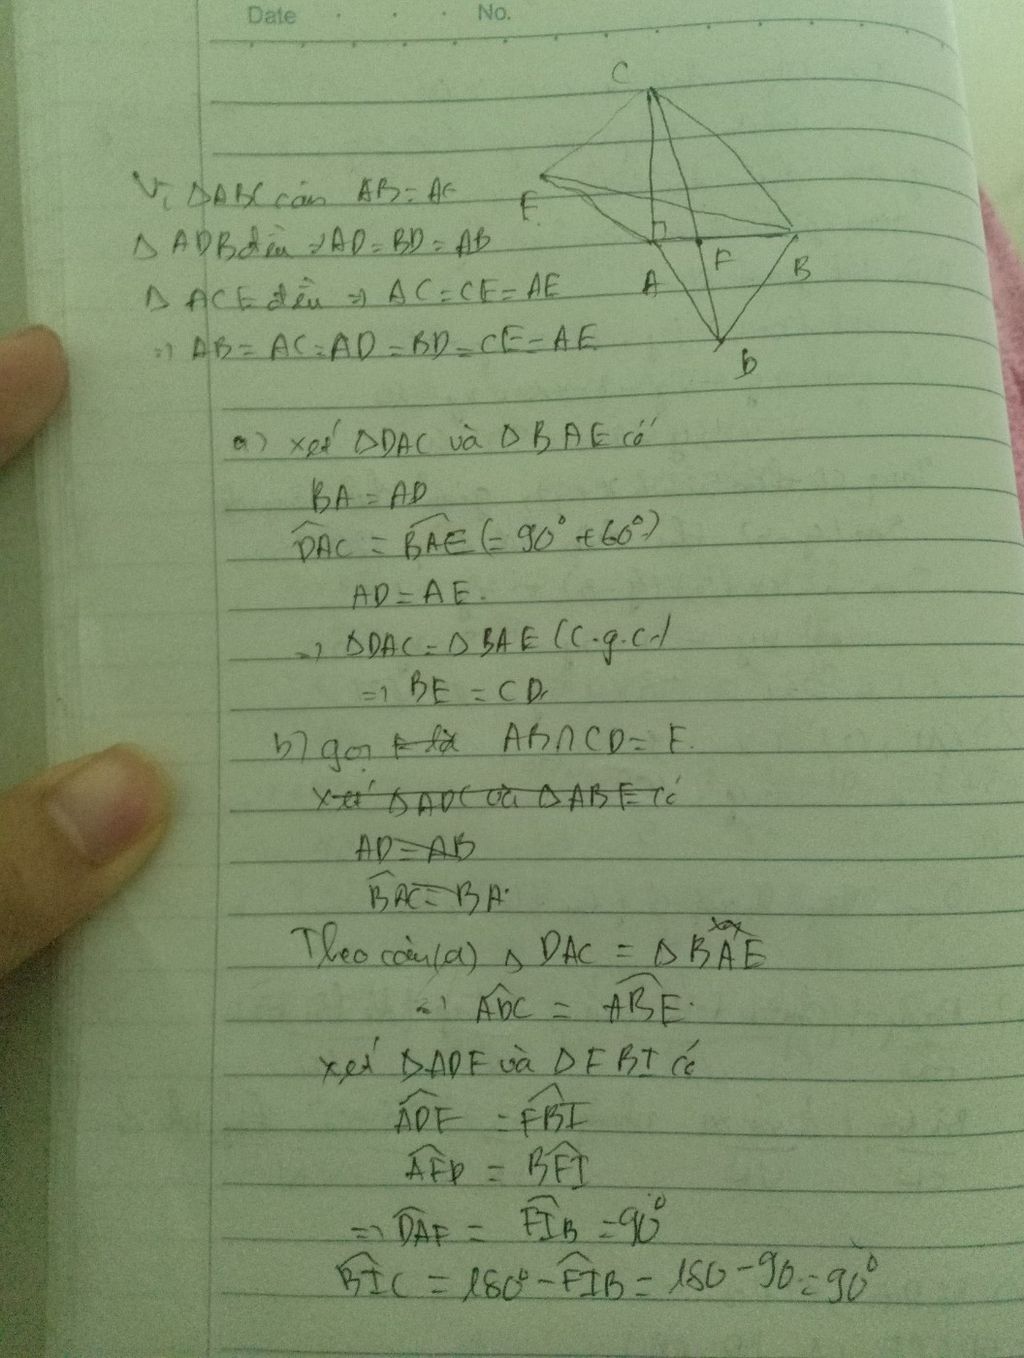 Date No.
C
E
A
F
B
D
Vì ΔABC cân AB = AC
Δ ADB đều ⇒ AD = BD = AB
Δ ACE đều ⇒ AC = CE = AE
⇒ AB = AC = AD = BD = CE = AE
a) xét ΔDAC và ΔBAE có
BA = AD
DAC = BAE (= 90° + 60°)
AD = AE.
⇒ ΔDAC = ΔBAE (c.g.c)
⇒ BE = CD
b) gọi F là AB∩CD = F.
xét ΔADC và ΔABE có
AD = AB
BAC = BA
Theo câu (a) Δ DAC = Δ BAE
⇒ ADC = ABE.
xét ΔADF và ΔFBI có
ADF = FBI
AFD = BFI
⇒ DAF = FIB = 90°
BIC = 180° - FIB = 180 - 90 = 90°